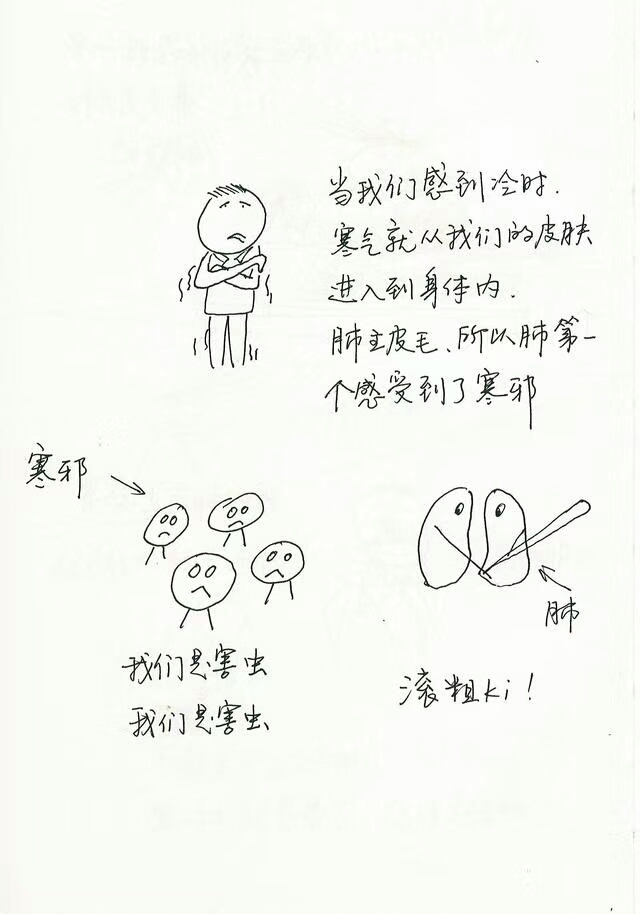 当我们感到冷时.
寒气就从我们的皮肤
进入到身体内.
肺主皮毛、所以肺第一
个感受到了寒邪
寒邪
我们是害虫
我们是害虫
肺
滚粗ki!